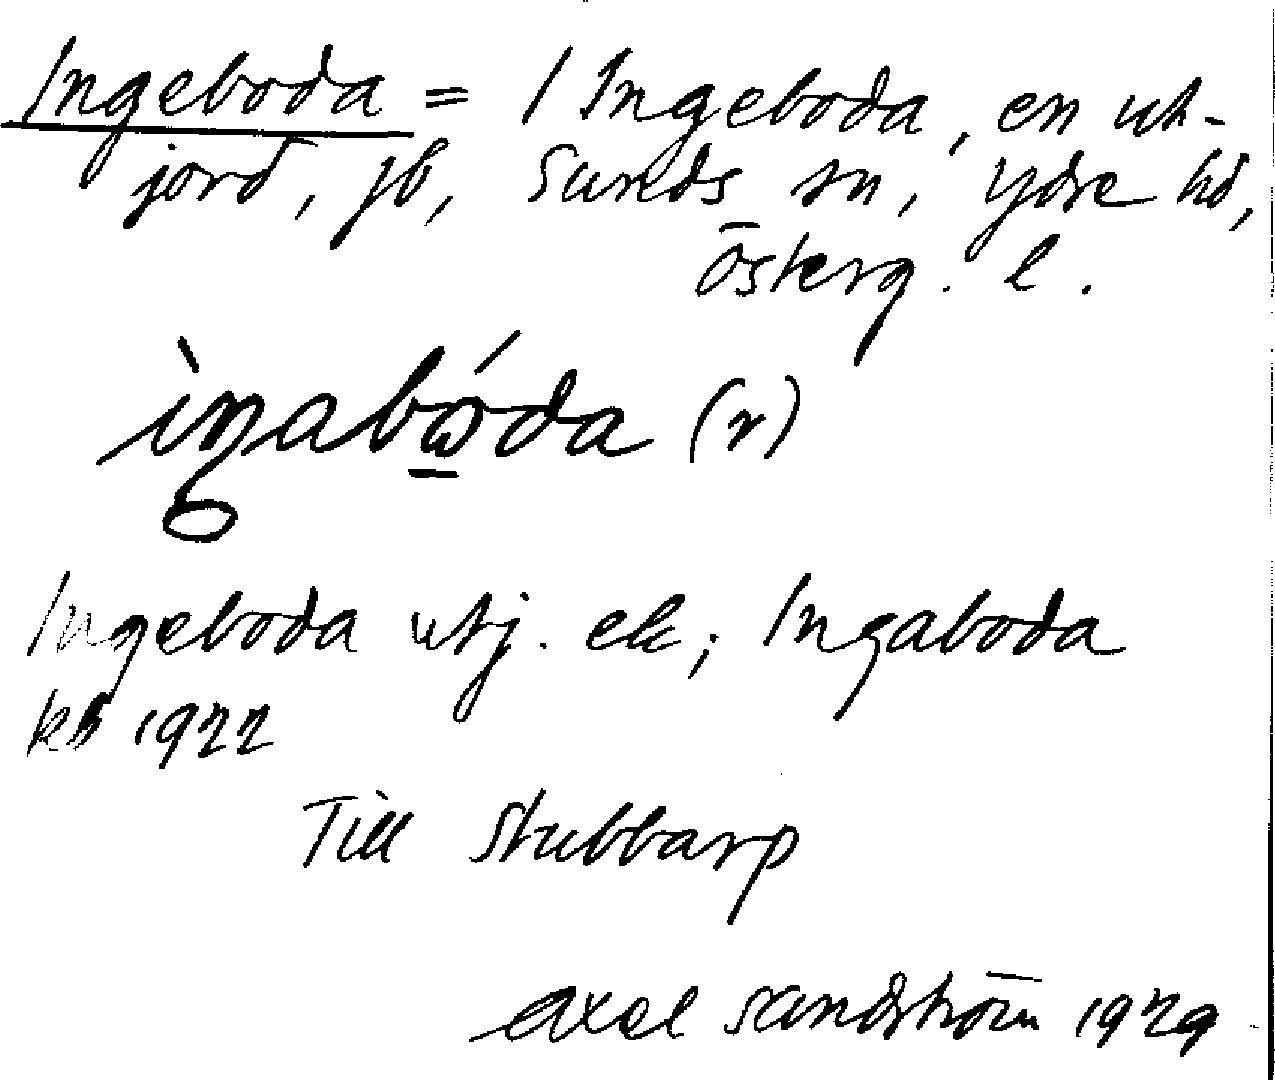 Ingeboda = 1 Ingeboda, en ut-
jord, jb, Sunds sn, Ydre hd,
Österg. l.
ìŋabώ̱da (r)
Ingeboda utj. ek; Ingaboda
kb 1922
Till Stubbarp
Axel Sandström 1929